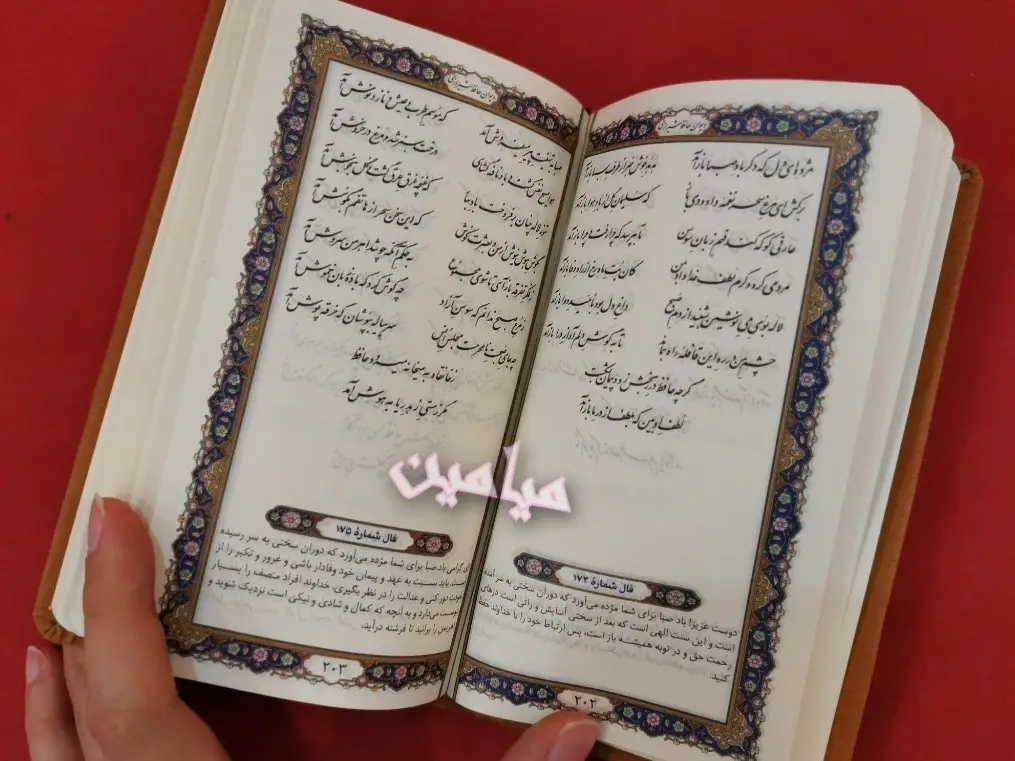 دیوان حافظ شیرازی
مژده ای دل که دگر باد صبا بازآمد هدهد خوش خبر از طرف سبا بازآمد
برکش ای مرغ سحر نغمه داوودی باز که سلیمان گل از باد هوا بازآمد
عارفی کو که کند فهم زبان سوسن تا بپرسد که چرا رفت و چرا بازآمد
مردمی کرد و کرم لطف خداداد به من کان بت ماه رخ از راه وفا بازآمد
لاله بوی می نوشین بشنید از دم صبح داغ دل بود به امید دوا بازآمد
چشم من در ره این قافله راه بماند تا به گوش دلم آواز درا بازآمد
گرچه حافظ در رنجش زد و پیمان بشکست
لطف او بین که به لطف از در ما بازآمد
فال شمارهٔ ۱۷۴
دوست عزیز! باد صبا برای شما مژده می‌آورد که دوران سختی به سر آمده
است و این سنت الهی است که بعد از سختی آسایش و راتی است درهای
رحمت حق و در توبه همیشه باز است، پس ارتباط خود را با خداوند حفظ
کنید.
۲۰۲
دیوان حافظ شیرازی
صبا به تهنیت پیر می فروش آمد که موسم طرب و عیش و ناز و نوش آمد
هوا مسیح نفس گشت و باد نافه گشای درخت سبز شد و مرغ در خروش آمد
تنور لاله چنان برفروخت باد بهار که غنچه غرق عرق گشت و گل به جوش آمد
به گوش هوش نیوش از من و به عشرت کوش که این سخن سحر از هاتفم به گوش آمد
ز فکر تفرقه بازآی تا شوی مجموع به حکم آنکه چو شد اهرمن سروش آمد
ز مرغ صبح ندانم که سوسن آزاد چه گوش کرد که با ده زبان خموش آمد
چه جای صحبت نامحرم است مجلس انس سر پیاله بپوشان که خرقه پوش آمد
ز خانقاه به میخانه می رود حافظ
مگر ز مستی زهد ریا به هوش آمد
میامین
فال شمارهٔ ۱۷۵
گرامی باد صبا برای شما مژده می‌آورد که دوران سختی به سر رسیده
باید نسبت به عهد و پیمان خود وفادار باشی و غرور و تکبر را از
دور کنی و عدالت را در نظر بگیری. خداوند افراد منصف را بسیار
دوست می‌دارد و به آنچه که کمال و شادی و نیکی است نزدیک شوید و
اهریمن را برانید تا فرشته درآید.
۲۰۳